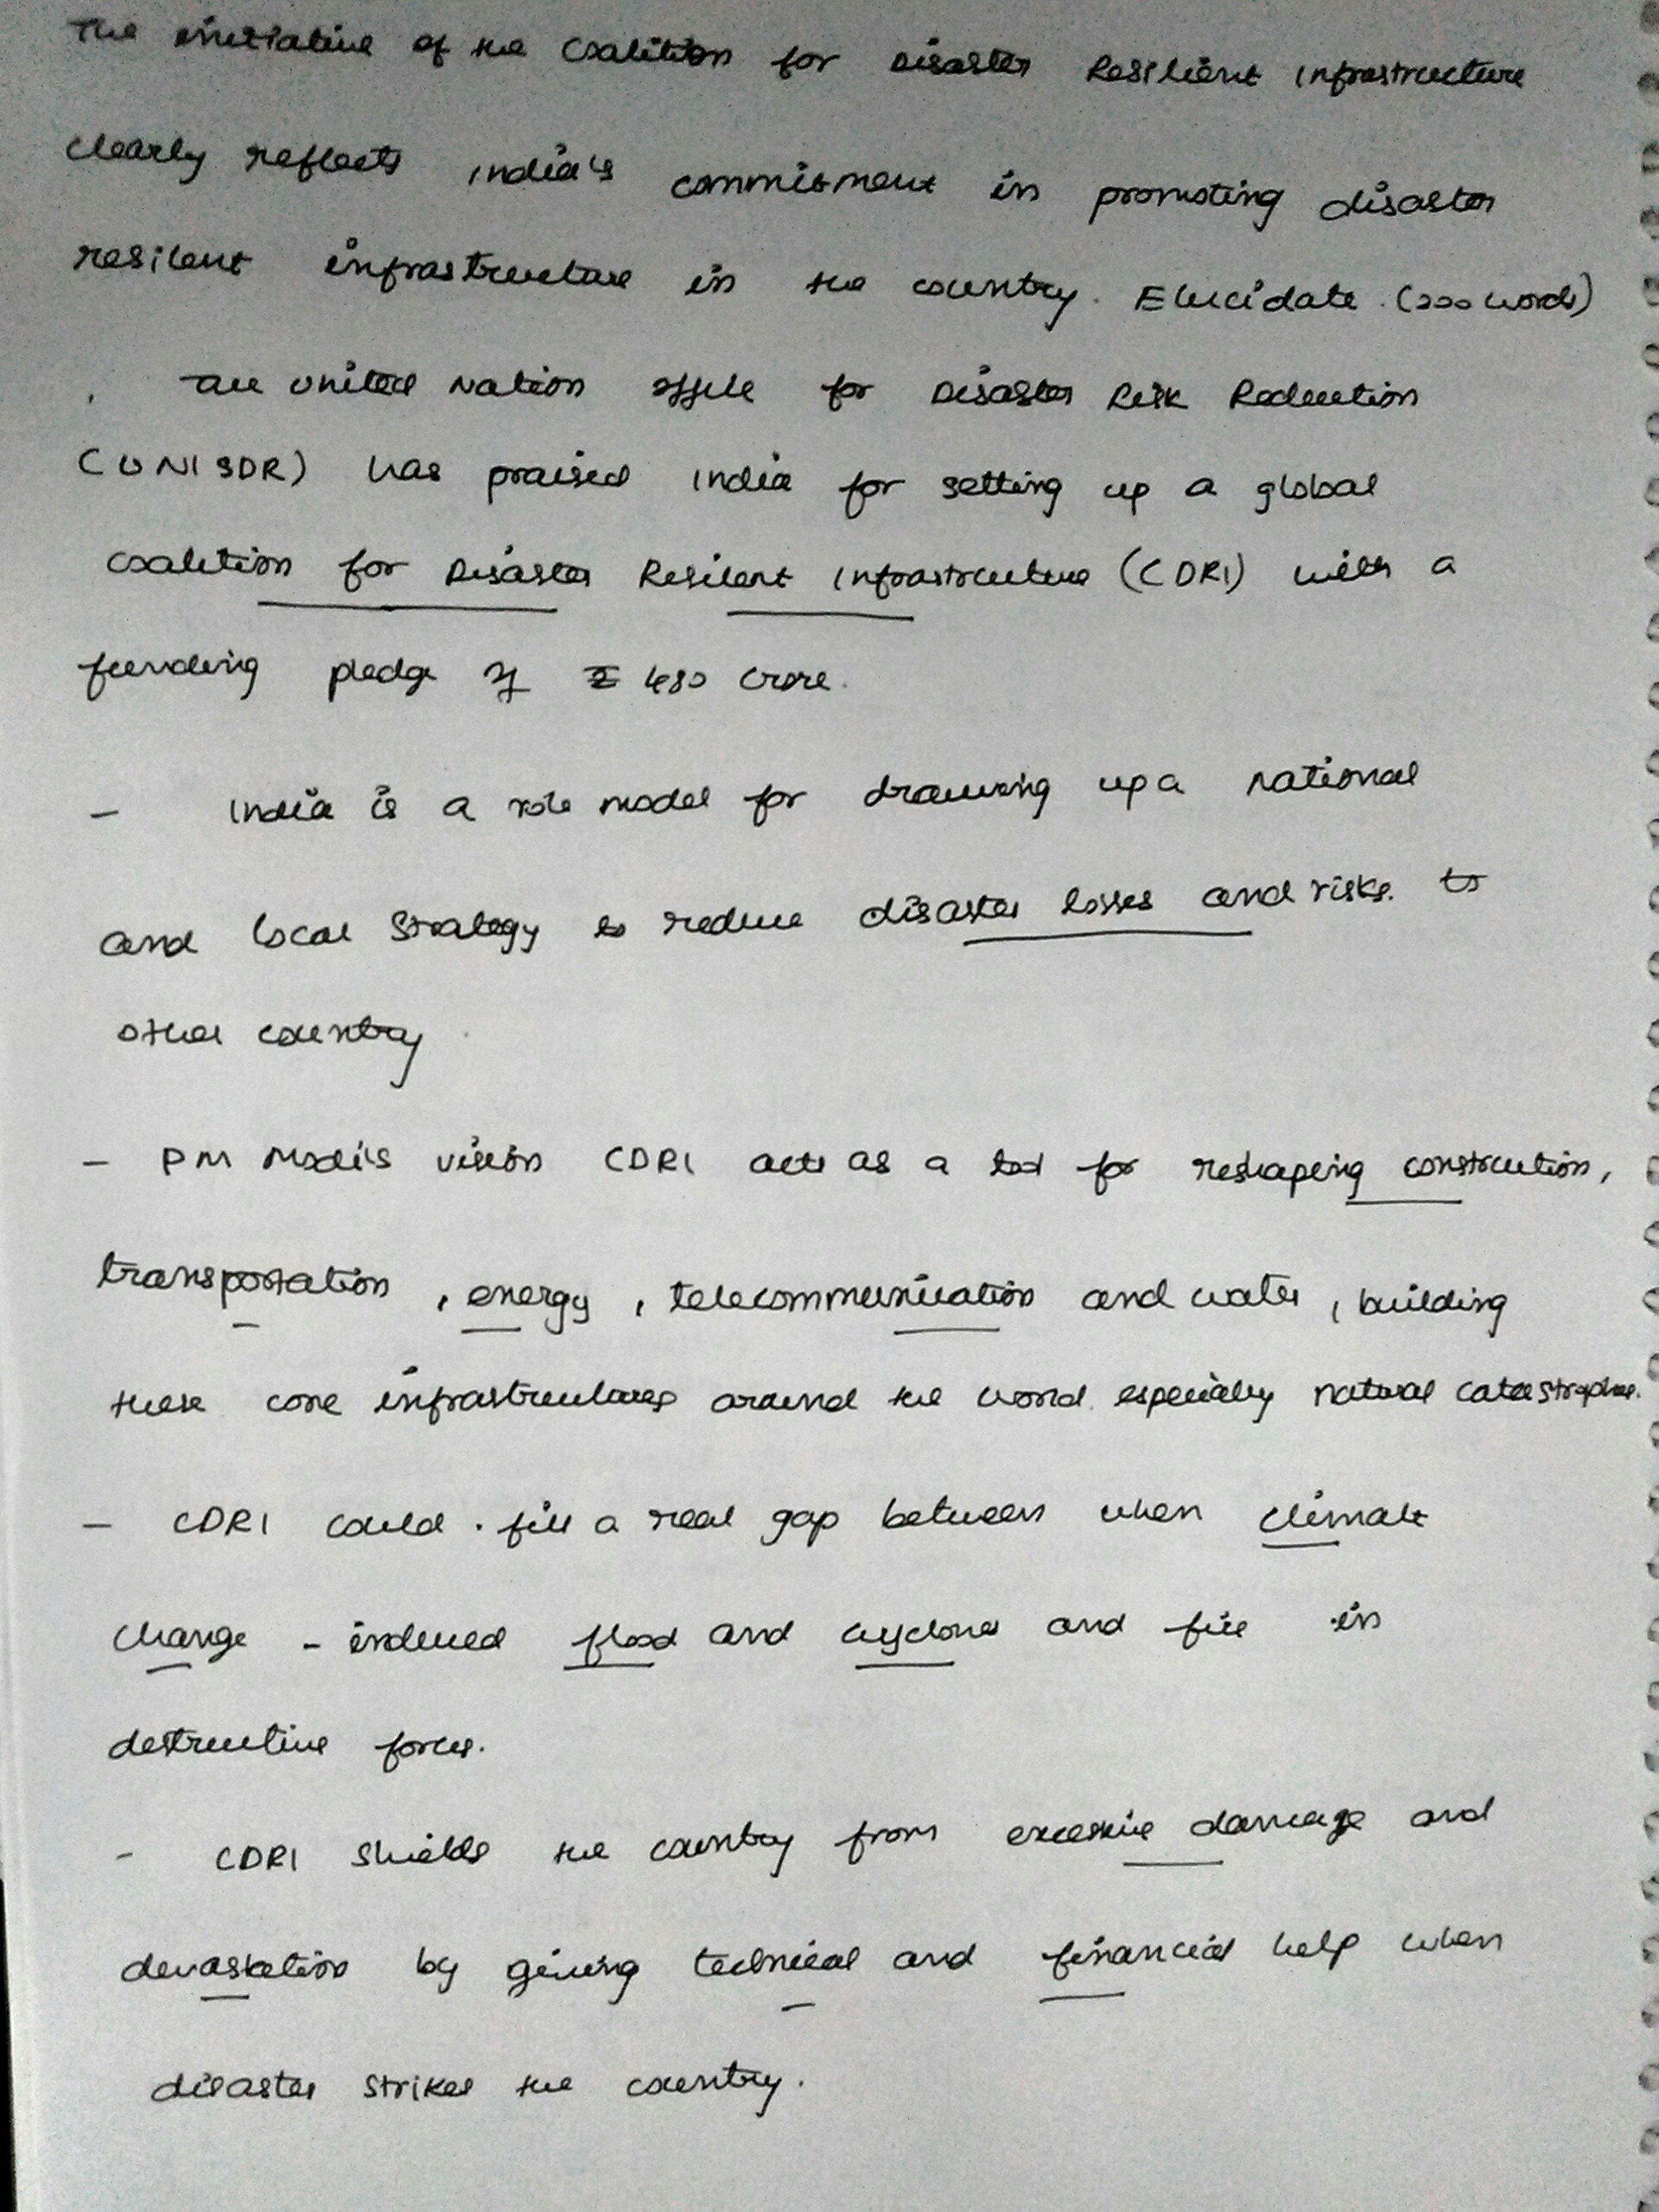 The initiative of the Coalition for Disaster Resilient Infrastructure
clearly reflects India's commitment in promoting disaster
resilent infrastructure in the country. Elucidate. (200 words)
The United Nation office for Disaster Risk Reduction
(UNISDR) has praised India for setting up a global
coalition for Disaster Resilent Infrastructure (CDRI) with a
funding pledge of ₹ 480 crore.
- India is a role model for drawing up a national
and local strategy to reduce disaster losses and risks. to
other country
- PM Modi's vision CDRI acts as a tool for reshaping construction,
transportation, energy, telecommunication and water, building
these core infrastructures around the world especially natural catastrophes.
- CDRI could fill a real gap between when climate
change - induced flood and cyclones and fire in
destructive forces.
- CDRI shields the country from excessive damage and
devastation by giving technical and financial help when
disaster strikes the country.